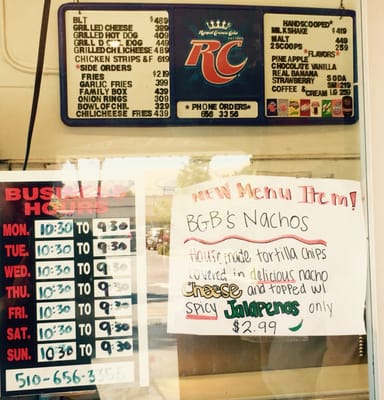 BLT $489
GRILLED CHEESE 389
GRILLED HOT DOG 409
GRILL D CHL DOG 449
GRILLED CHILCHEESE 489
CHICKEN STRIPS &F 619
*SIDE ORDERS
FRIES $219
GARLIC FRIES 399
FAMILY BOX 439
ONION RINGS 309
BOWL OF CHIL 329
CHILICHEESE FRIES 439
Royal Crown Cola
RC
*PHONE ORDERS*
656 3356
HANDSCOOPED*
MILKSHAKE $419
MALT 449
2 SCOOPS 259
*FLAVORS*
PINEAPPLE
CHOCOLATE VANILLA
REAL BANANA
STRAWBERRY SODA
COFFEE & SM 219
CREAM LG 259
BUSINESS
HOURS
MON. 10:30 TO 9:30
TUE. 10:30 TO 9:30
WED. 10:30 TO 9:30
THU. 10:30 TO 9:30
FRI. 10:30 TO 9:30
SAT. 10:30 TO 9:30
SUN. 10:30 TO 9:30
510-656-3356
NEW Menu Item!
BGB's Nachos
House made tortilla chips
covered in delicious nacho
Cheese and topped w/
spicy Jalapenos only
$2.99